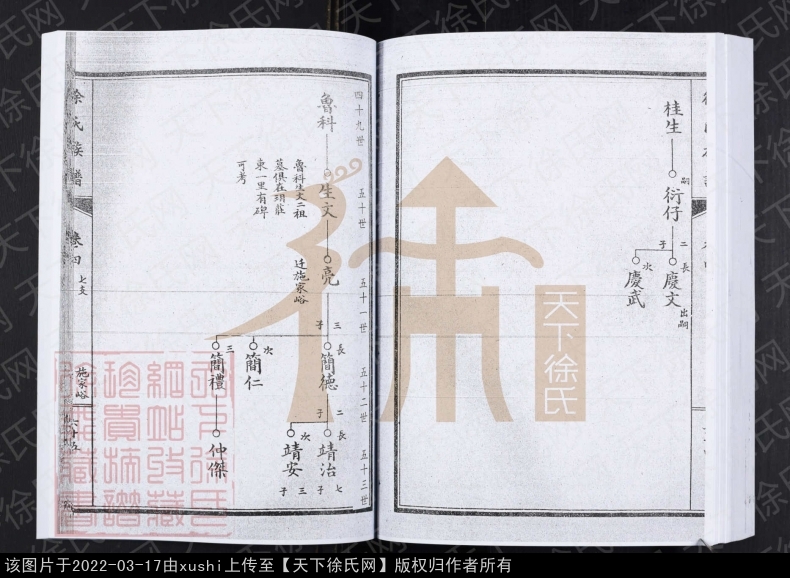 桂生
嗣
衍仔
二子
長 慶文 出嗣
次 慶武
四十九世
五十世
五十一世
五十二世
五十三世
魯科
生文
魯科生文二祖
墓俱在
東一里有碑
可考
亮
迁施家峪
三子
長 簡德
次 簡仁
三 簡禮
二子
長 靖治
七子
次 靖安
三子
仲傑
徐氏族譜
卷四
七支
施家峪
六十五
天下徐氏
该图片于2022-03-17由xushi上传至【天下徐氏网】版权归作者所有